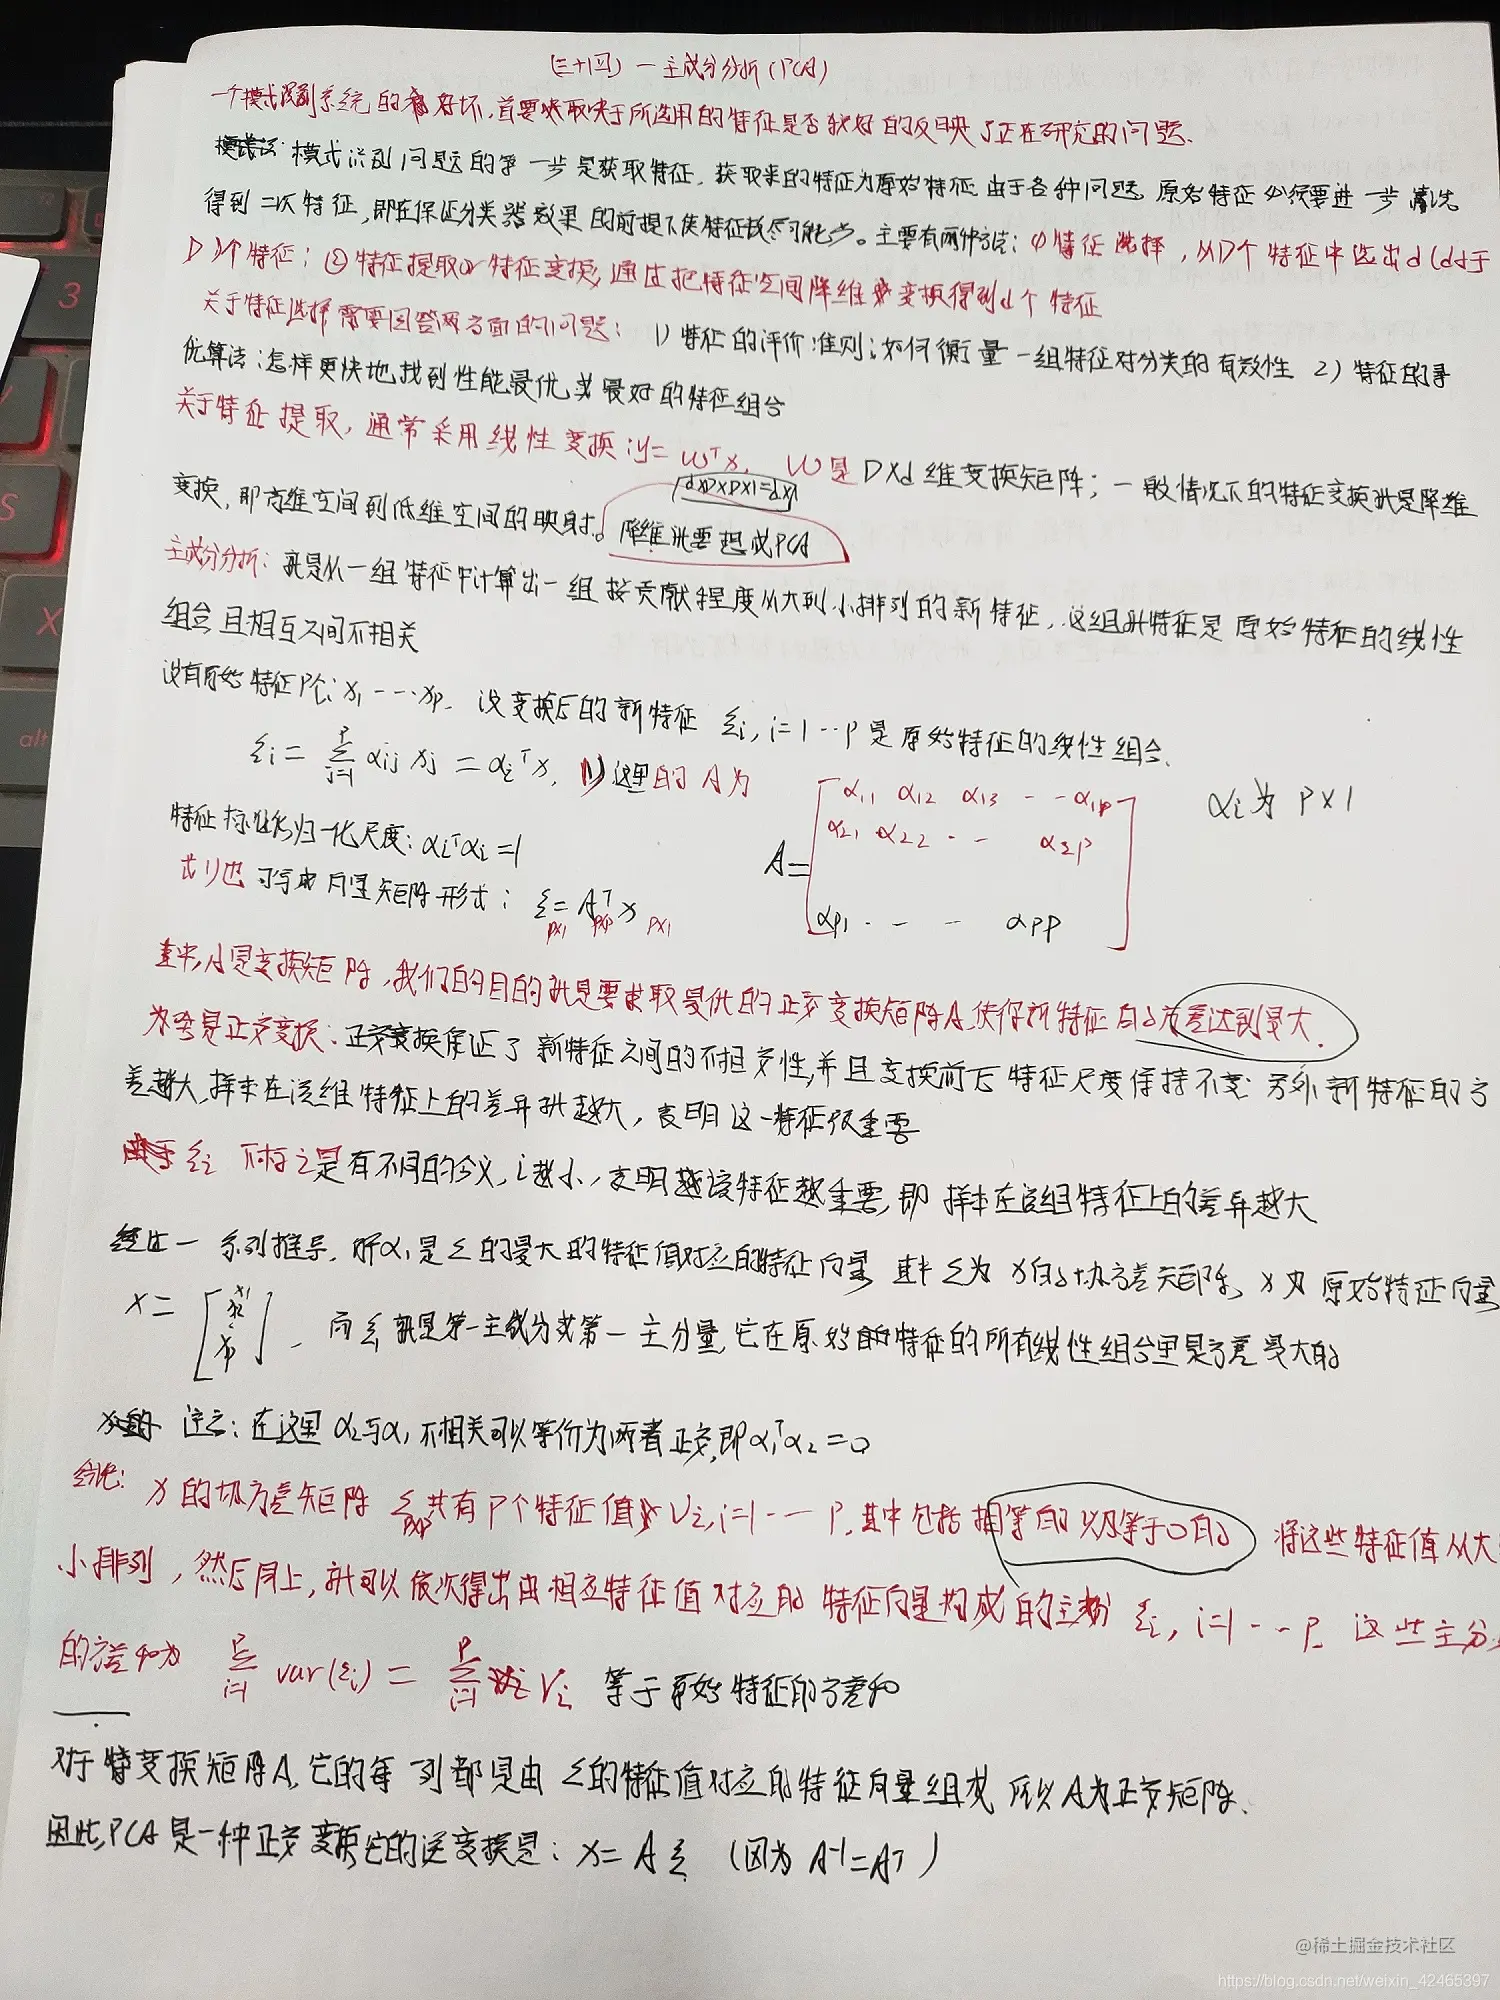 (三十四) — 主成分分析(PCA)
一个模式识别系统的好坏,首要取决于所选用的特征是否较好的反映了正在研究的问题.
模式识别问题的第一步是获取特征,获取来的特征为原始特征.由于各种问题,原始特征必须要进一步清洗
得到二次特征,即在保证分类器效果的前提下使特征尽可能少。主要有两种方法:①特征选择,从D个特征中选出d(d小于
D)个特征;②特征提取or特征变换,通过把特征空间降维变换得到d个特征
关于特征选择需要回答两方面的问题: 1) 特征的评价准则;如何衡量一组特征对分类的有效性 2) 特征的寻
优算法:怎样更快地找到性能最优或最好的特征组合
关于特征提取,通常采用线性变换:y=W^T x, W是D×d维变换矩阵;一般情况下的特征变换就是降维
d×D×D×1=d×1
变换,即高维空间到低维空间的映射。降维就要想成PCA
主成分分析:就是从一组特征中计算出一组按贡献程度从大到小排列的新特征,这组新特征是原始特征的线性
组合且相互之间不相关
设有原始特征P个:x1----xp. 设变换后的新特征 ξi, i=1--P是原始特征的线性组合.
ξi = Σ_{j=1}^{P} αij xj = αi^T x, (1) 这里的A为
A= [ α11 α12 α13 - - α1p
α21 α22 - - α2p
αp1 - - - αpp ]
αi为 P×1
特征标准化归一化尺度: αi^T αi=1
式1也可写成向量矩阵形式: ξ = A^T x
P×1 P×P P×1
其中,A是变换矩阵,我们的目的就是要求取最优的正交变换矩阵A,使得新特征的方差达到最大.
为啥是正交变换:正交变换保证了新特征之间的不相交性,并且变换前后特征尺度保持不变.另外新特征的方
差越大,样本在该维特征上的差异就越大,表明这一特征很重要
ξi 下标i是有不同的含义,i越小,表明该特征越重要,即样本在该组特征上的差异越大
经过一系列推导,解α1是Σ的最大的特征值对应的特征向量 其中Σ为x的协方差矩阵,x为原始特征向量
x = [ x1 x2 - xp ] , 而ξ1就是第一主成分或第一主分量,它在原始特征的所有线性组合里是方差最大的
注意:在这里α2与α1不相关可以等价为两者正交,即α1^T α2=0
结论: x的协方差矩阵Σ共有P个特征值Vi, i=1--- P, 其中包括相等的以及等于0的 将这些特征值从大
P×P
小排列,然后同上,就可以依次得出由相应特征值对应的特征向量构成的主 ξi, i=1---P. 这些主分
的方差和为 Σ_{i=1}^{P} var(ξi) = Σ_{i=1}^{P} Vi 等于原始特征的方差和
对于变换矩阵A,它的每一列都是由Σ的特征值对应的特征向量组成 所以A为正交矩阵.
因此,PCA是一种正交变换它的逆变换是: x=Aξ (因为 A^-1=A^T)
3
S
X
alt
@稀土掘金技术社区
https://blog.csdn.net/weixin_42465397